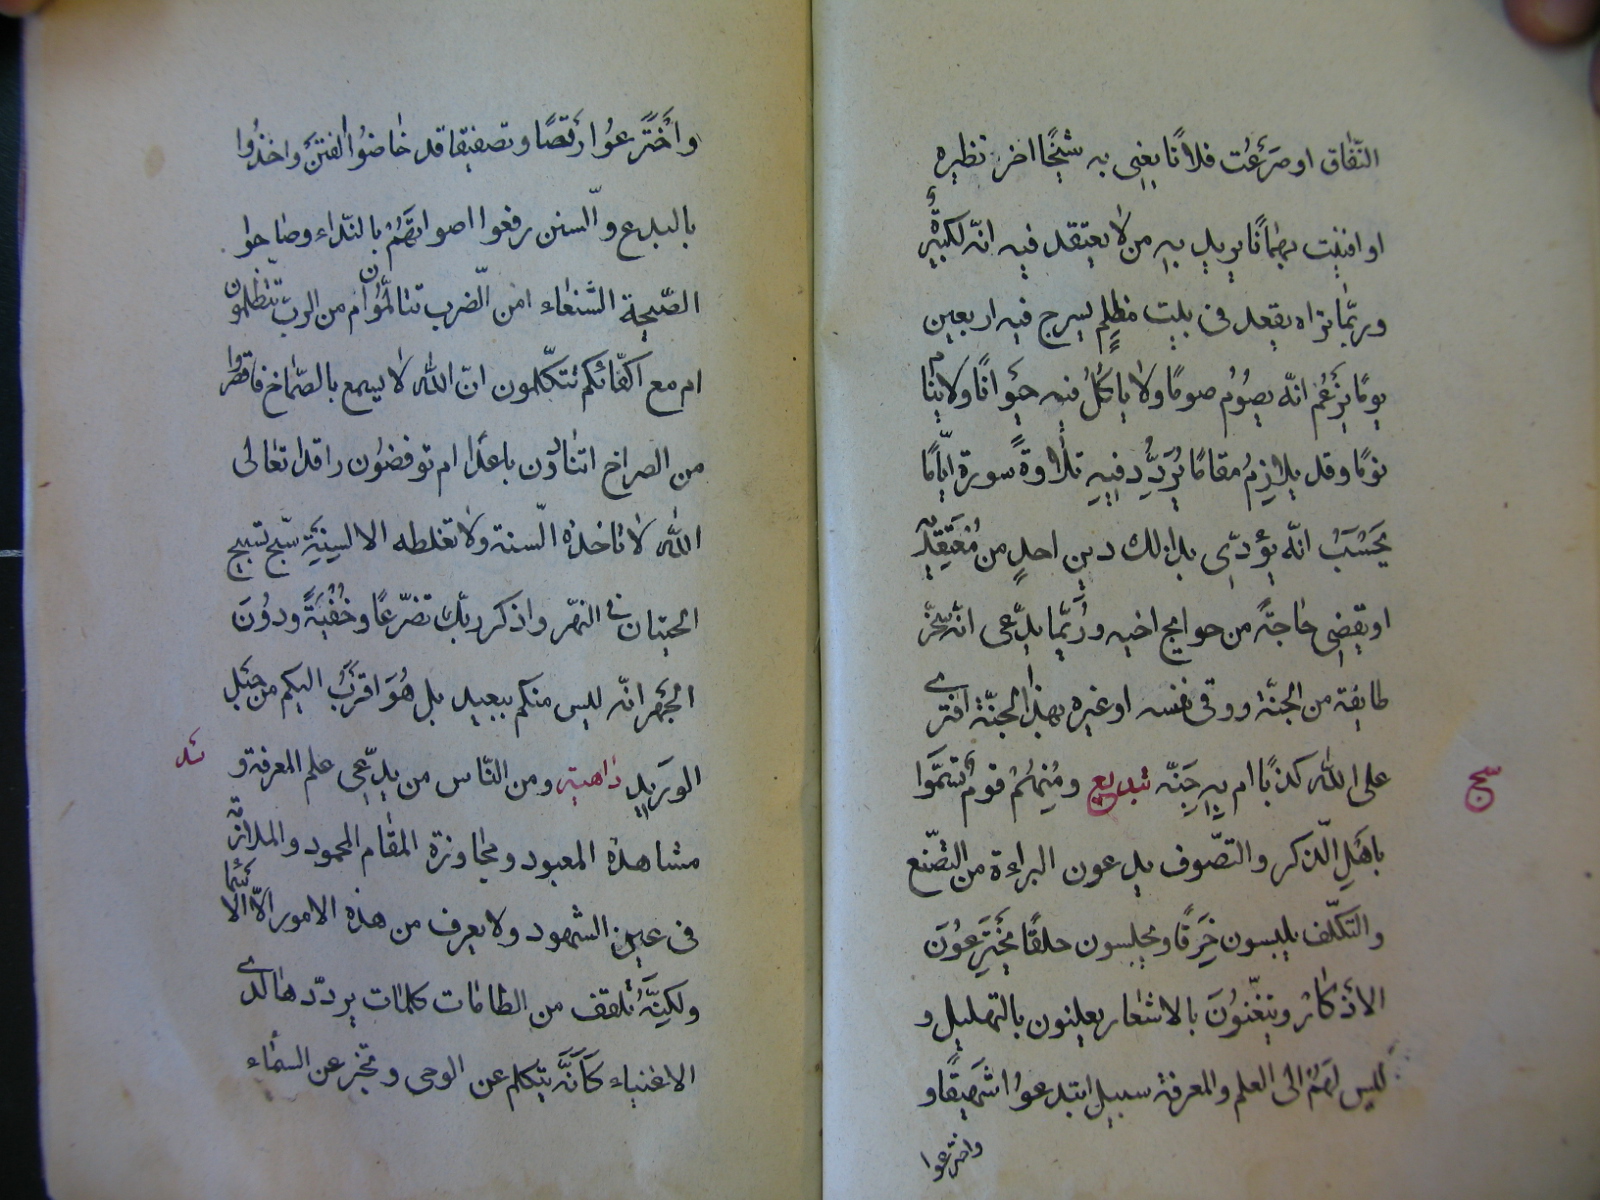 النّفاق او صَرَعْت فلانًا يعنى به شيخًا اخر نظيره
او افنيت بهمانًا يريد به من لا يعتقد فيه انّه لكبيرةٌ
وربّما تراه يقعد فى بيت مظلمٍ يسرج فيه اربعين
يومًا يزعُم انّه يصوُمُ صومًا ولا ياكُلُ فيه حَيَوانًا ولا ينام
نومًا وقد يلازِمُ مقامًا يُرَدِّد فيه تلاوةً سورة ايّامًا
يَحسَبُ انّه يؤدّى بذلك دين احدٍ من مُعتَقِديه
او يقضِى حاجَةً من حوايج اخيه ورُبَّما يدّعى انّه سخّر
طايفة من الجنّة ووقى نفسه او غيره بهذا الجنّة افترى
على الله كذبًا ام به جِنّة تبديع ومِنهُمْ قوم تَسَمَّوا
سح
باهَلِ الذّكر والتصّوف يدعون البراءة من التصّنع
والتكلّف يلبسون خِرَقًا ويجلسون حلقًا يَختَرِعُونَ
الأذكار ويتغنَّونَ بالاشعار يعلنون بالتهليل و
ليس لهمْ الى العلم والمعرفة سبيل ابتدعوُا شَهيقًا و
واخترعوا
واَختَرعوُا رَقصًا وتصفيقا قد خاضوُا الفتنَ واخذُوا
بالبدع والسّنن رفعوا اصواتَهُمْ بالنّداء وصاحوا
الصّيحة الشنعاء امن الضّرب تتالّمُون ام من الربّ تتظلّمون
ام مع اكفّائكم تتكّلمون انّ الله لا يسمع بالصّماخ فاقصروا
من الصراخ اتنادون باعدا ام توقضوُن راقدا تعالى
الله لا تاخذه السّنة ولا تغلطه الالسِنَةِ سَبّح تسبيح
الحيتان فى النهر واذكر ربّك تضرّعًا وخُفْيَةً ودوُنَ
الجَهر انّه ليس منكم ببعيد بل هُوَ اقرَبُ اليكم من حَبَلِ
الوَريدِ داهية ومن النّاس من يدّعِى علم المعرفة و
ئد
مشاهدة المعبود ومجاوزة المقام المحمود والملازمة
فى عين الشهود ولا يعرف من هذه الامور الاّ الاسماء
ولكِنَّهُ تلقف من الطامات كلمات يردّدها لدى
الاغنياء كَاَنَّه يتكلم عن الوحى ويخبر عن السماء